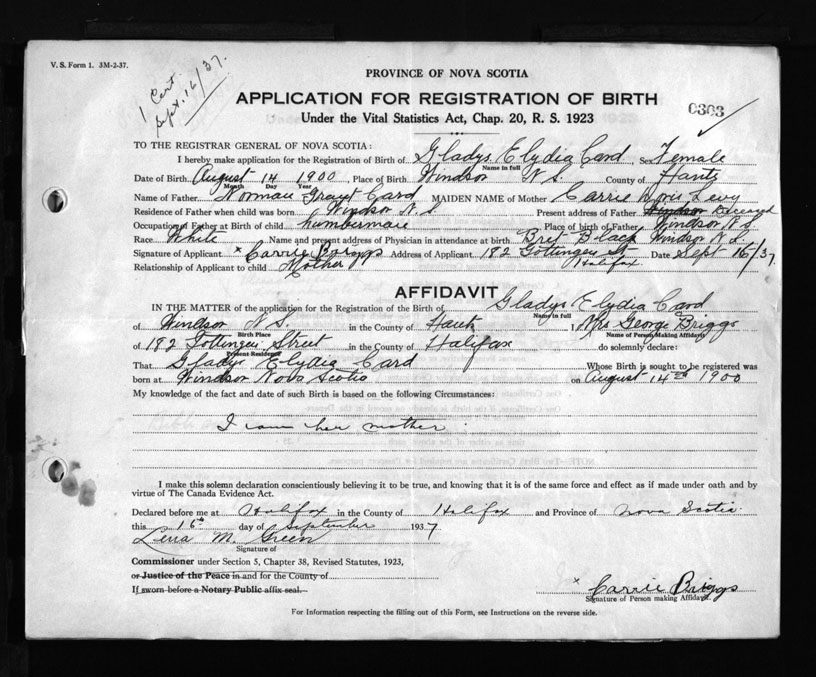 V. S. Form 1. 3M-2-37.
1 Cert.
Sept. 16/37.
PROVINCE OF NOVA SCOTIA
APPLICATION FOR REGISTRATION OF BIRTH
Under the Vital Statistics Act, Chap. 20, R. S. 1923
0303
TO THE REGISTRAR GENERAL OF NOVA SCOTIA:
I hereby make application for the Registration of Birth of Gladys Elydia Card Sex Female
Name in full
Date of Birth August 14 1900, Place of Birth Windsor N S. County of Hants
Month Day Year
Name of Father Norman Grant Card MAIDEN NAME of Mother Carrie Levy
Residence of Father when child was born Windsor N. S. Present address of Father Windsor Deceased
Occupation of Father at Birth of child Lumberman Place of birth of Father Windsor N S
Race White Name and present address of Physician in attendance at birth Black Windsor N. S.
Signature of Applicant x Carrie Briggs Address of Applicant 182 Gottingen St Halifax Date Sept 16/37
Relationship of Applicant to child Mother
AFFIDAVIT
IN THE MATTER of the application for the Registration of the Birth of Gladys Elydia Card
Name in full
of Windsor N. S. in the County of Hants I Mrs George Briggs
Birth Place Name of Person Making Affidavit
of 182 Gottingen Street in the County of Halifax do solemnly declare:
Present Residence
That Gladys Elydia Card Whose Birth is sought to be registered was
born at Windsor Nova Scotia on August 14th 1900
My knowledge of the fact and date of such Birth is based on the following Circumstances:
I am her mother.
I make this solemn declaration conscientiously believing it to be true, and knowing that it is of the same force and effect as if made under oath and by
virtue of The Canada Evidence Act.
Declared before me at Halifax in the County of Halifax and Province of Nova Scotia
this 16th day of September 1937
Lena M. Green
Signature of
Commissioner under Section 5, Chapter 38, Revised Statutes, 1923,
or Justice of the Peace in and for the County of
If sworn before a Notary Public affix seal.
x Carrie Briggs
Signature of Person making Affidavit.
For Information respecting the filling out of this Form, see Instructions on the reverse side.